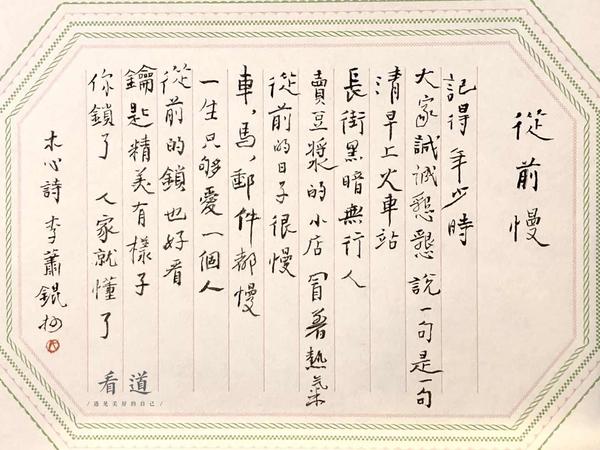 從前慢
記得年少時
大家誠誠懇懇 說一句是一句
清早上火車站
長街黑暗無行人
賣豆漿的小店冒着熱氣
從前的日子很慢
車,馬,郵件都慢
一生只够愛一個人
從前的鎖也好看
鑰匙精美有樣子
你鎖了 人家就懂了
木心詩 李蕭錕抄
看道
/遇見美好的自己/